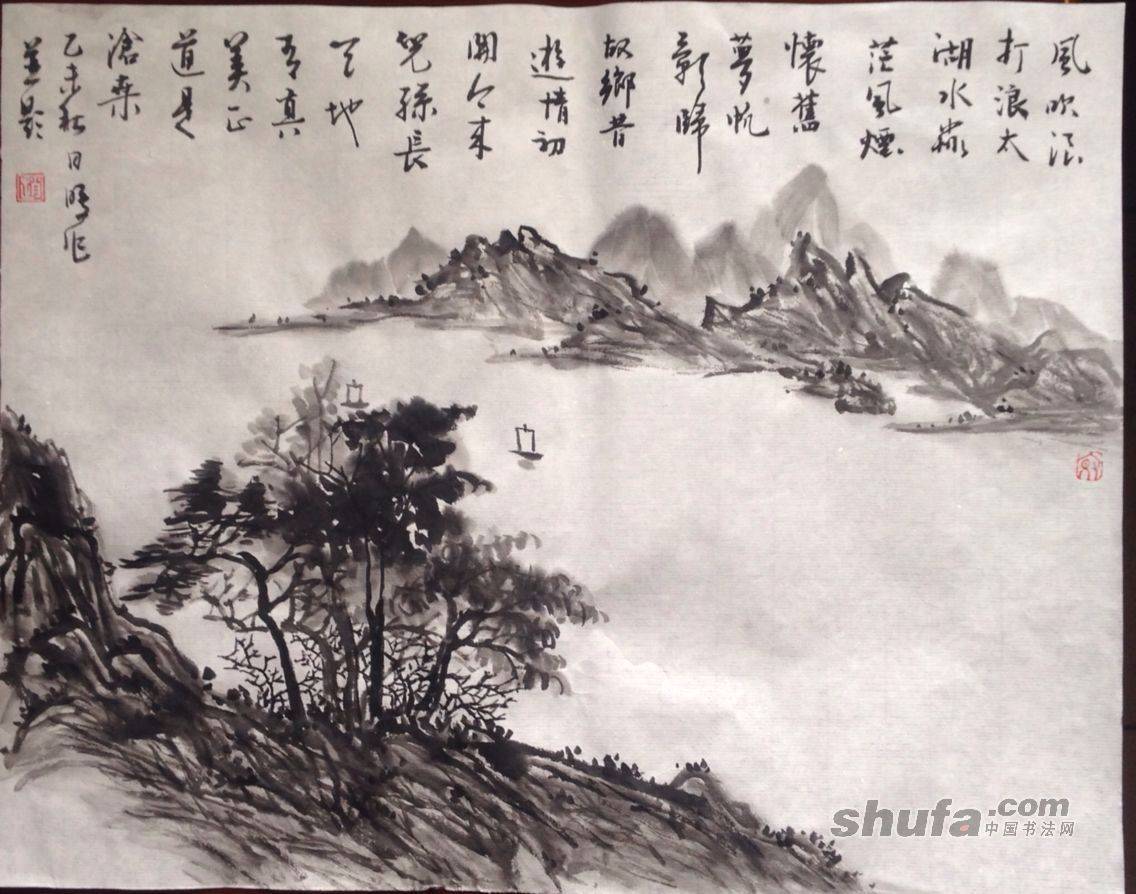 風吹浪
打浪太
湖水
茫風煙
懷舊
夢帆
影歸
故鄉昔
遊情初
開今來
兒孫長
天地
有真
美正
道是
滄桑
乙未秋日作
並題
shufa.com
中国书法网